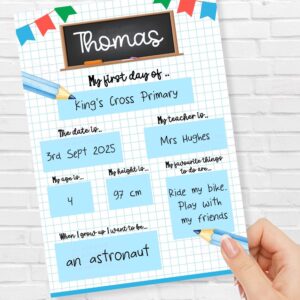 Thomas
My first day of ..
King's Cross Primary
The date is...
My teacher is...
3rd Sept 2025
Mrs Hughes
My age is...
My height is...
My favourite things
to do are...
4
97 cm
Ride my bike.
Play with
my friends
When I grow up I want to be...
an astronaut